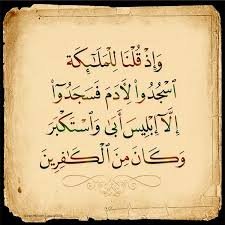 وَإِذْ قُلْنَا لِلْمَلَٰٓئِكَةِ
ٱسْجُدُوا۟ لِأَدَمَ فَسَجَدُوٓا۟
إِلَّآ إِبْلِيسَ أَبَىٰ وَٱسْتَكْبَرَ
وَكَانَ مِنَ ٱلْكَٰفِرِينَ